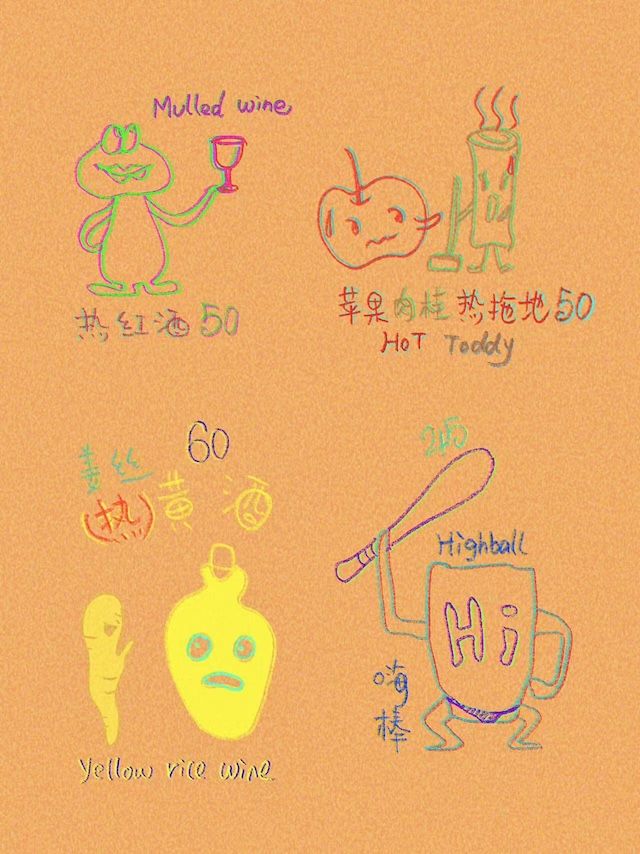 Mulled wine
热红酒 50
苹果肉桂热拖地50
HoT Toddy
60
姜丝
(热)黄酒
Yellow rice wine
45
Highball
Hi
嗨棒